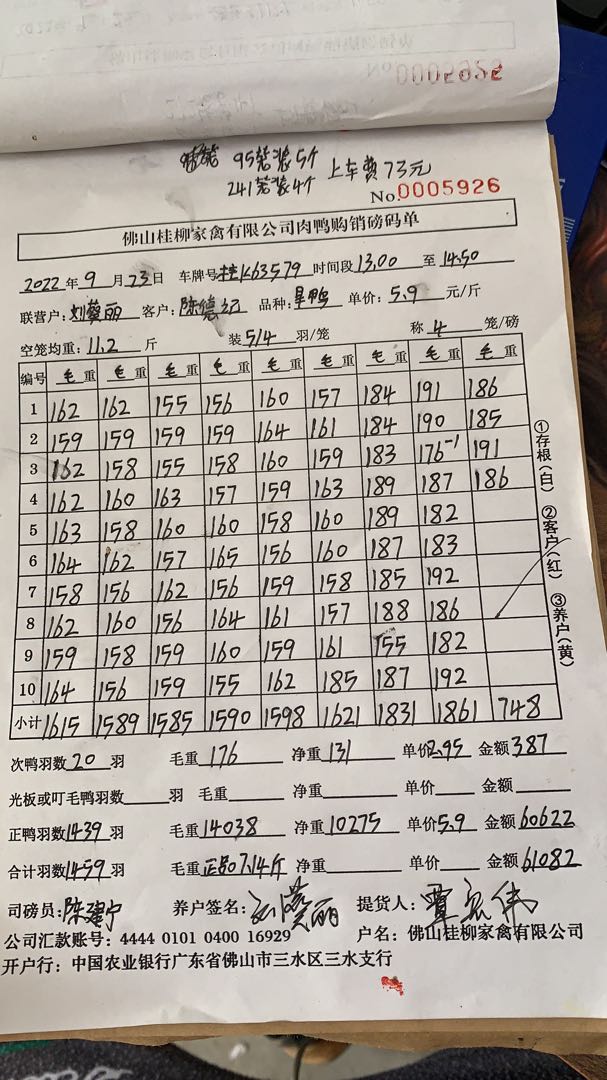 No 0005952
95笼装5个 上车费73元
241笼装4个
No.0005926
佛山桂柳家禽有限公司肉鸭购销磅码单
2022年9月23日 车牌号桂K63579 时间段13.00至14.50
联营户:刘葵丽 客户:陈德 品种:旱鸭 单价:5.9元/斤
空笼均重:11.2斤 装5/4羽/笼 称4笼/磅
编号 毛重 毛重 毛重 毛重 毛重 毛重 毛重 毛重 毛重
1 162 162 155 156 160 157 184 191 186
2 159 159 159 159 164 161 184 190 185
3 162 158 155 158 160 159 183 176-1 191
4 162 160 163 157 159 163 189 187 186
5 163 158 160 160 158 160 189 182
6 164 162 157 165 156 160 187 183
7 158 156 162 156 159 158 185 192
8 162 160 156 164 161 157 188 186
9 159 158 159 160 159 161 155 182
10 164 156 159 155 162 185 187 192
小计 1615 1589 1585 1590 1598 1621 1831 1861 748
①存根(白) ②客户(红) ③养户(黄)
次鸭羽数20羽 毛重176 净重131 单价2.95 金额387
光板或叮毛鸭羽数 羽 毛重 净重 单价 金额
正鸭羽数1439羽 毛重14038 净重10275 单价5.9 金额60622
合计羽数1459羽 毛重正品7.14斤 净重 单价 金额61082
司磅员:陈建宁 养户签名:刘葵丽 提货人:覃宏伟
公司汇款账号: 4444 0101 0400 16929 户名: 佛山桂柳家禽有限公司
开户行: 中国农业银行广东省佛山市三水区三水支行